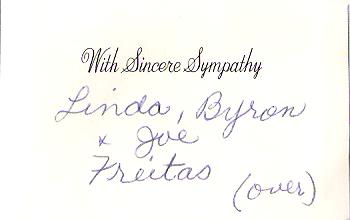 With Sincere Sympathy
Linda, Byron
x Joe
Freitas
(over)